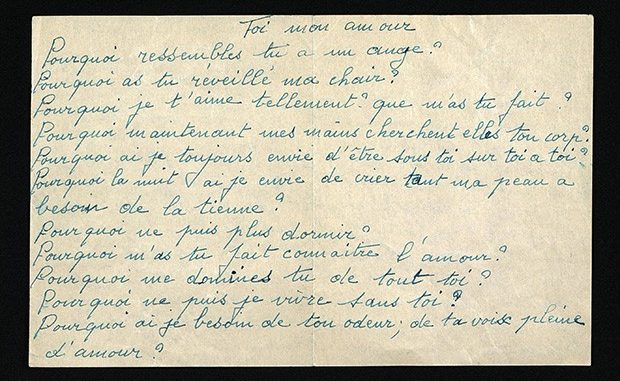 Toi mon amour
Pourquoi ressembles tu a un ange?
Pourquoi as tu réveillé ma chair?
Pourquoi je t'aime tellement? que m'as tu fait?
Pourquoi maintenant mes mains cherchent elles ton corp?
Pourquoi ai je toujours envie d'être sous toi sur toi a toi?
Pourquoi la nuit ai je envie de crier tant ma peau a
besoin de la tienne?
Pourquoi ne puis plus dormir?
Pourquoi m'as tu fait connaitre l'amour?
Pourquoi me domines tu de tout toi?
Pourquoi ne puis je vivre sans toi?
Pourquoi ai je besoin de ton odeur; de ta voix pleine
d'amour?